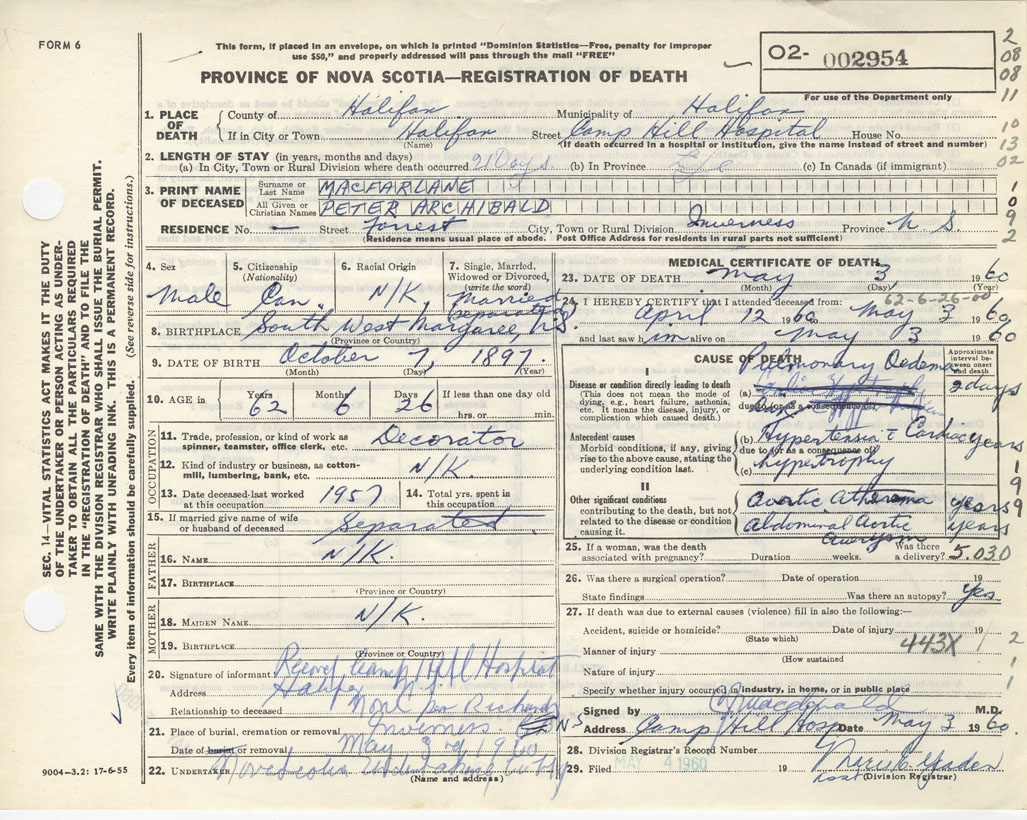 FORM 6
This form, if placed in an envelope, on which is printed "Dominion Statistics—Free, penalty for improper
use $50," and properly addressed will pass through the mail "FREE"
PROVINCE OF NOVA SCOTIA—REGISTRATION OF DEATH
O2- 002954
For use of the Department only
2
08
08
11
10
13
02
1
0
9
2
1. PLACE OF DEATH
County of Halifax Municipality of Halifax
If in City or Town Halifax Street Camp Hill Hospital House No.
(Name) (If death occurred in a hospital or institution, give the name instead of street and number)
2. LENGTH OF STAY (in years, months and days)
(a) In City, Town or Rural Division where death occurred 21 Days (b) In Province Life (c) In Canada (if immigrant)
3. PRINT NAME OF DECEASED
Surname or Last Name MACFARLANE
All Given or Christian Names PETER ARCHIBALD
RESIDENCE No. — Street Forrest City, Town or Rural Division Inverness Province N S.
(Residence means usual place of abode. Post Office Address for residents in rural parts not sufficient)
4. Sex
Male
5. Citizenship (Nationality)
Can.
6. Racial Origin
N/K,
7. Single, Married, Widowed or Divorced, (write the word)
Married (separated)
8. BIRTHPLACE South West Margaree, N.S.
(Province or Country)
9. DATE OF BIRTH October 7, 1897.
(Month) (Day) (Year)
10. AGE in Years 62 Months 6 Days 26 If less than one day old
hrs. or min.
OCCUPATION
11. Trade, profession, or kind of work as spinner, teamster, office clerk, etc. Decorator
12. Kind of industry or business, as cotton-mill, lumbering, bank, etc. N/K.
13. Date deceased last worked at this occupation 1957
14. Total yrs. spent in this occupation
15. If married give name of wife or husband of deceased Separated
FATHER
16. NAME N/K.
17. BIRTHPLACE
(Province or Country)
MOTHER
18. MAIDEN NAME N/K.
19. BIRTHPLACE
(Province or Country)
20. Signature of informant Records Camp Hill Hospital
Address Halifax N.S.
Relationship to deceased
21. Place of burial, cremation or removal Inverness NS
Date of burial or removal May 3rd 1960
22. UNDERTAKER Nova Scotia Undertaking
(Name and address)
MEDICAL CERTIFICATE OF DEATH
23. DATE OF DEATH May 3 1960
(Month) (Day) (Year)
62-6-26-00
24. I HEREBY CERTIFY that I attended deceased from:
April 12 1960 May 3 1960
and last saw him alive on May 3 1960
CAUSE OF DEATH
Approximate interval between onset and death
I
Disease or condition directly leading to death
(This does not mean the mode of dying, e.g., heart failure, asthenia, etc. It means the disease, injury, or complication which caused death.)
(a) Pulmonary Oedema 2 days
due to (or as a consequence of)
Antecedent causes
Morbid conditions, if any, giving rise to the above cause, stating the underlying condition last.
(b) Hypertensia c Cardiac years
due to (or as a consequence of)
(c) hypertrophy
II
Other significant conditions
contributing to the death, but not related to the disease or condition causing it.
Aortic Atheroma years
Abdominal Aortic Aneurysm years
1
9
9
25. If a woman, was the death associated with pregnancy? Duration weeks. Was there a delivery? 5.030
26. Was there a surgical operation? Date of operation 19
State findings Was there an autopsy? Yes
27. If death was due to external causes (violence) fill in also the following:—
Accident, suicide or homicide? Date of injury 19
(State which) 443X
Manner of injury
(How sustained)
Nature of injury
Specify whether injury occurred in industry, in home, or in public place
2
1
1
Signed by Macdonald M.D.
Address Camp Hill Hosp Date May 3 1960
28. Division Registrar's Record Number
29. Filed MAY 4 1960 19
(Division Registrar)
SEC. 14—VITAL STATISTICS ACT MAKES IT THE DUTY
OF THE UNDERTAKER OR PERSON ACTING AS UNDER-
TAKER TO OBTAIN ALL THE PARTICULARS REQUIRED
IN THE "REGISTRATION OF DEATH" AND TO FILE THE
SAME WITH THE DIVISION REGISTRAR WHO SHALL ISSUE THE BURIAL PERMIT.
WRITE PLAINLY WITH UNFADING INK. THIS IS A PERMANENT RECORD.
Every item of information should be carefully supplied. (See reverse side for instructions.)
9004—3.2: 17-6-55